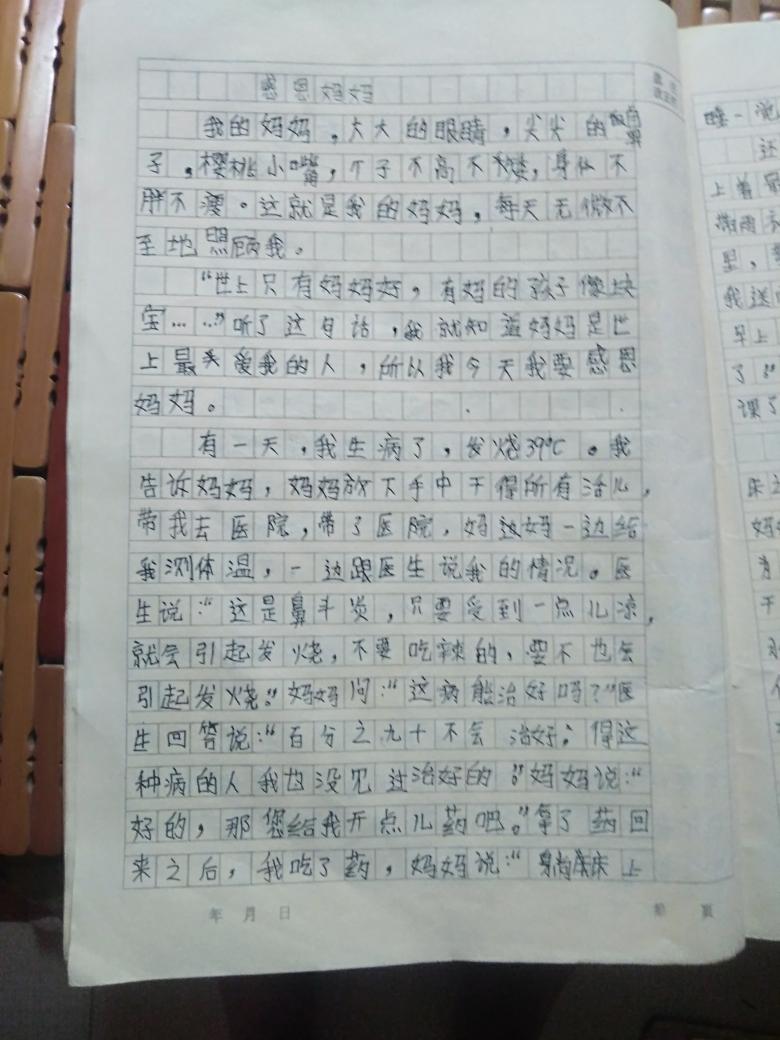 感恩妈妈
我的妈妈，大大的眼睛，尖尖的鼻
子，樱桃小嘴，个子不高不矮，身体不
胖不瘦。这就是我的妈妈，每天无微不
至地照顾我。
“世上只有妈妈好，有妈的孩子像块
宝……”听了这句话，我就知道妈妈是世
上最关爱我的人，所以我今天我要感恩
妈妈。
有一天，我生病了，发烧39℃。我
告诉妈妈，妈妈放下手中干得所有活儿，
带我去医院，带了医院，妈边妈一边给
我测体温，一边跟医生说我的情况。医
生说：“这是鼻斗炎，只要受到一点儿凉，
就会引起发烧，不要吃辣的，要不也会
引起发烧。”妈妈问：“这病能治好吗？”医
生回答说：“百分之九十不会治好；得这
种病的人我也没见过治好的。”妈妈说：“
好的，那您给我开点儿药吧。”拿了药回
来之后，我吃了药，妈妈说：“躺床上
年 月 日
页
睡一觉
上着
带雨
里，
我送
早上
了。”
课了
床
妈
有
干